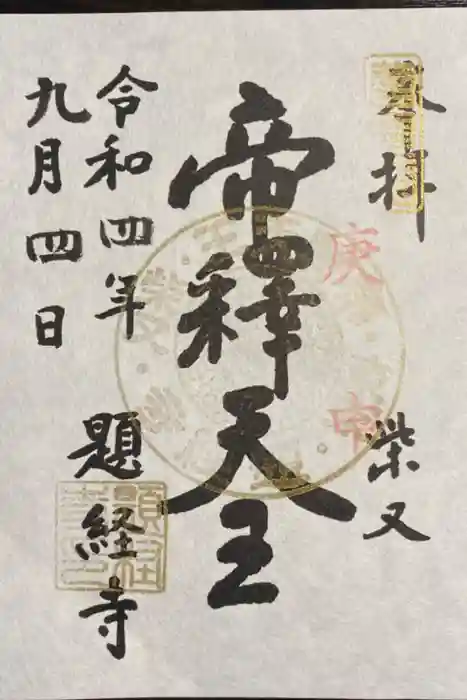 奉拝
柴又
庚申
帝釋天王
令和四年
九月四日
題経寺